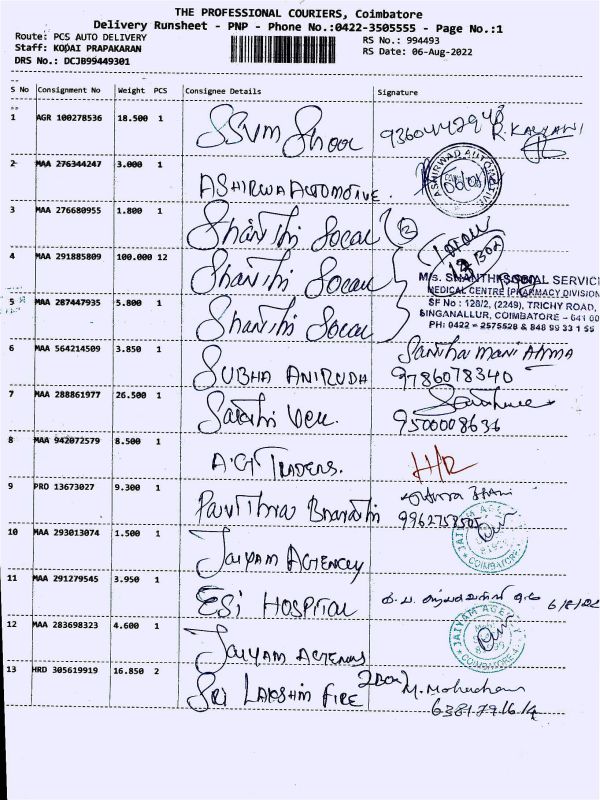 THE PROFESSIONAL COURIERS, Coimbatore
Delivery Runsheet - PNP - Phone No.:0422-3505555 - Page No.:1
Route: PCS AUTO DELIVERY
RS No.: 994493
Staff: KODAI PRAPAKARAN
RS Date: 06-Aug-2022
DRS No.: DCJB99449301
S No Consignment No Weight PCS Consignee Details Signature
1 AGR 100278536 18.500 1 SSVM School 9360442948 R.KALYANI
2 MAA 276344247 3.000 1 ASHIRWA AUTOMOTIVE. ASHIRWAD AUTOMOTIVE
3 MAA 276680955 1.800 1 Shanthi Social 2
4 MAA 291885809 100.000 12 Shanthi Social
M/s. SHANTHI SOCIAL SERVIC
MEDICAL CENTRE (PHARMACY DIVISION
5 MAA 287447935 5.800 1 Shanthi Social
SF No : 128/2, (2249), TRICHY ROAD,
SINGANALLUR, COIMBATORE - 641 00
PH: 0422 - 2575528 & 848 99 33 1 55
6 MAA 564214509 3.850 1 SUBHA ANIRUDH
9786078340
7 MAA 288861977 26.500 1 Sakthi
9500008636
8 MAA 942072579 8.500 1 A.G.T TRADERS. H/R
9 PRO 13673027 9.300 1 Pavithra Bharathi
10 MAA 293013074 1.500 1 JAIYAM AGENCY JAIYAM AGENCY COIMBATORE
11 MAA 291279545 3.950 1 ESI HOSPITAL
12 MAA 283698323 4.600 1 JAIYAM AGENCY JAIYAM AGENCY COIMBATORE
13 HRD 305619919 16.850 2 SRI LAKSHIM FIRE 2Box M. Mohan